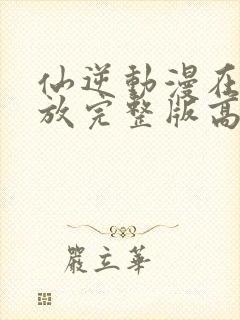 仙逆動漫在
放完整版高
嚴立華